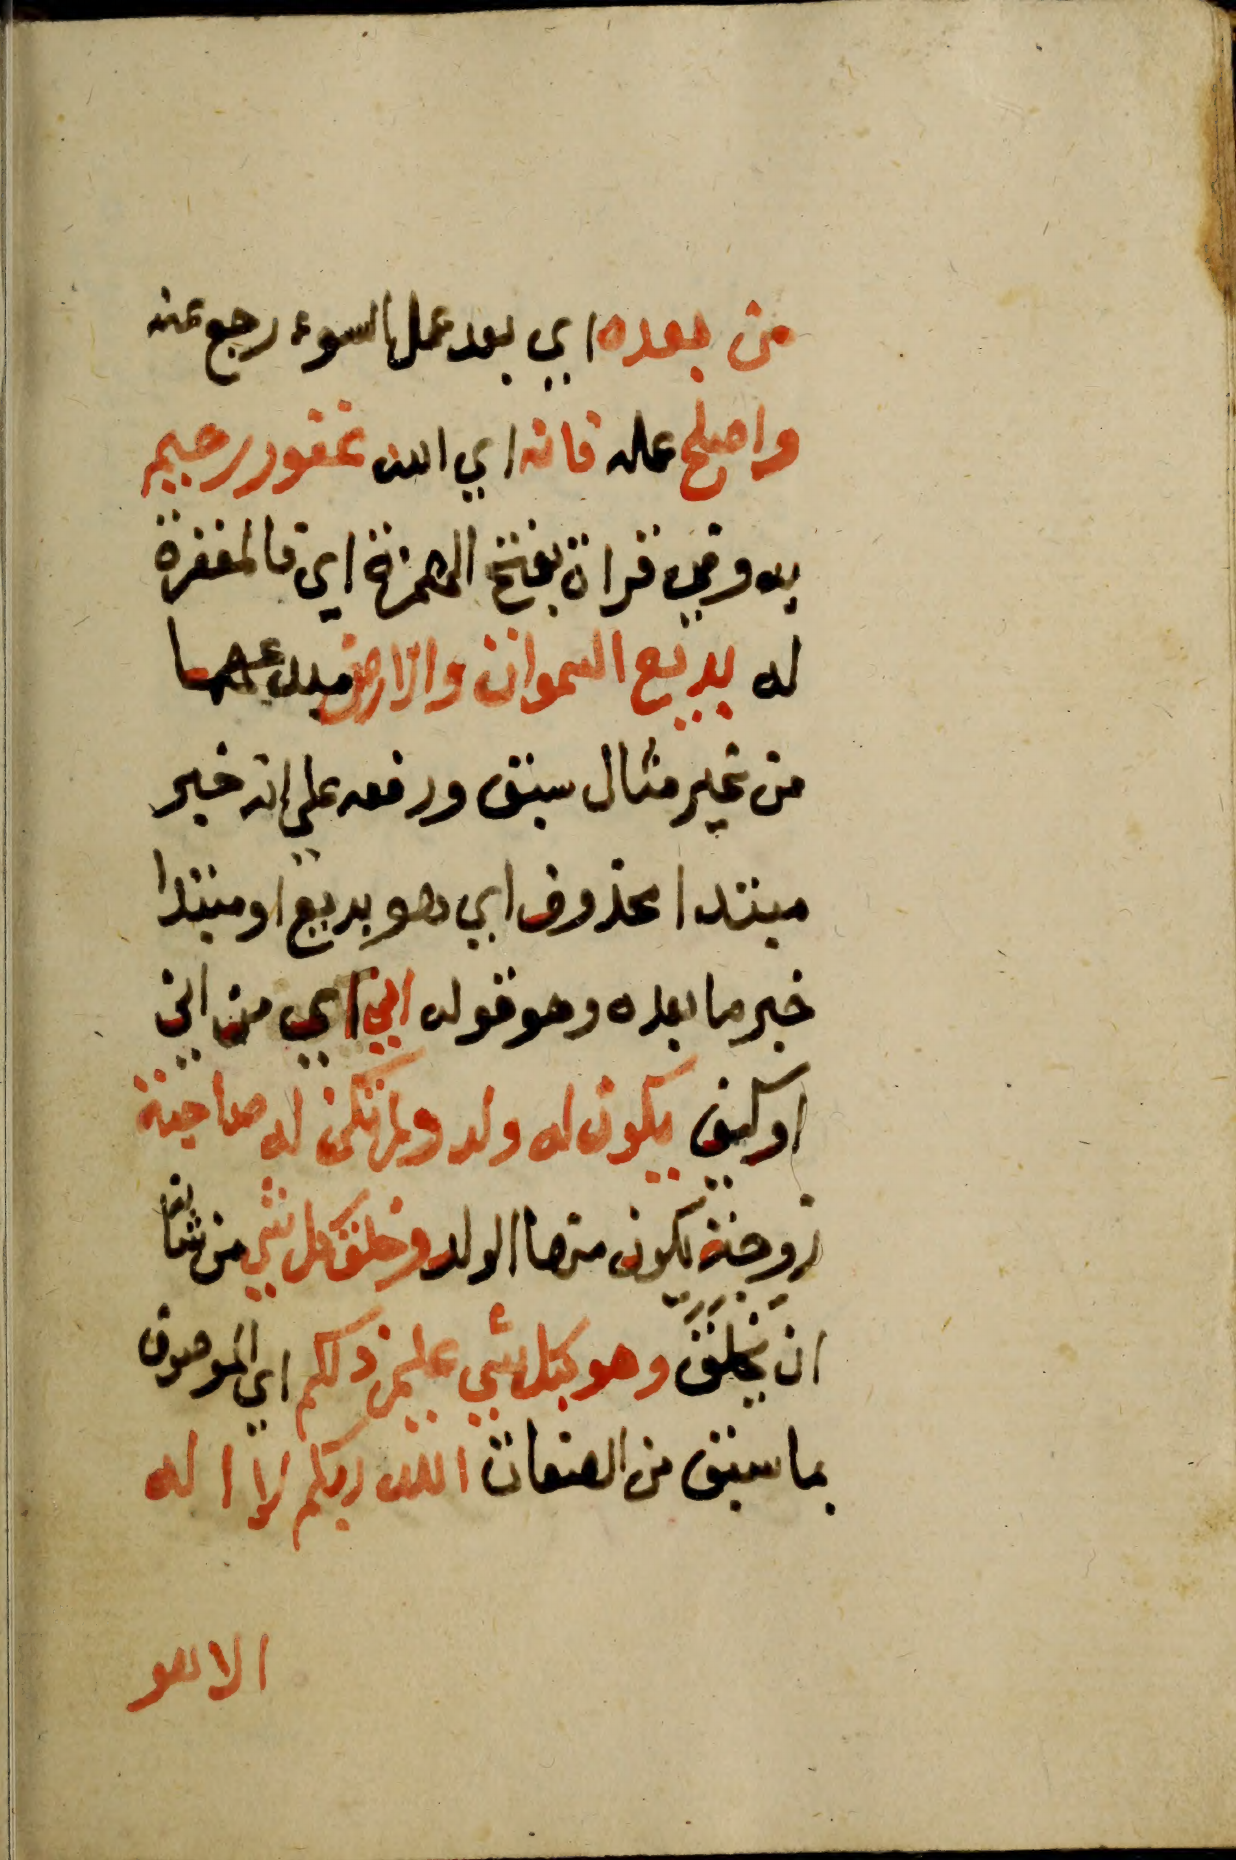 من بعده اي بعد عمل السوء رجع عنه
واصلح عمله فانه اي الله غفور رحيم
به وفي قراة بفتح الهمزة اي فالمغفرة
له بديع السموات والارض مبدعهما
من غير مثال سبق ورفعه على انه خبر
مبتدا محذوف اي هو بديع او مبتدا
خبر ما بعده وهو قوله اني اي من اني
او كيف يكون له ولد ولم تكن له صاحبة
زوجة يكون منها الولد وخلق كل شي من شانه
ان يخلق وهو بكل شي عليم ذلكم اي الموصوف
بما سبق من الصفات الله ربكم لا اله
الا هو